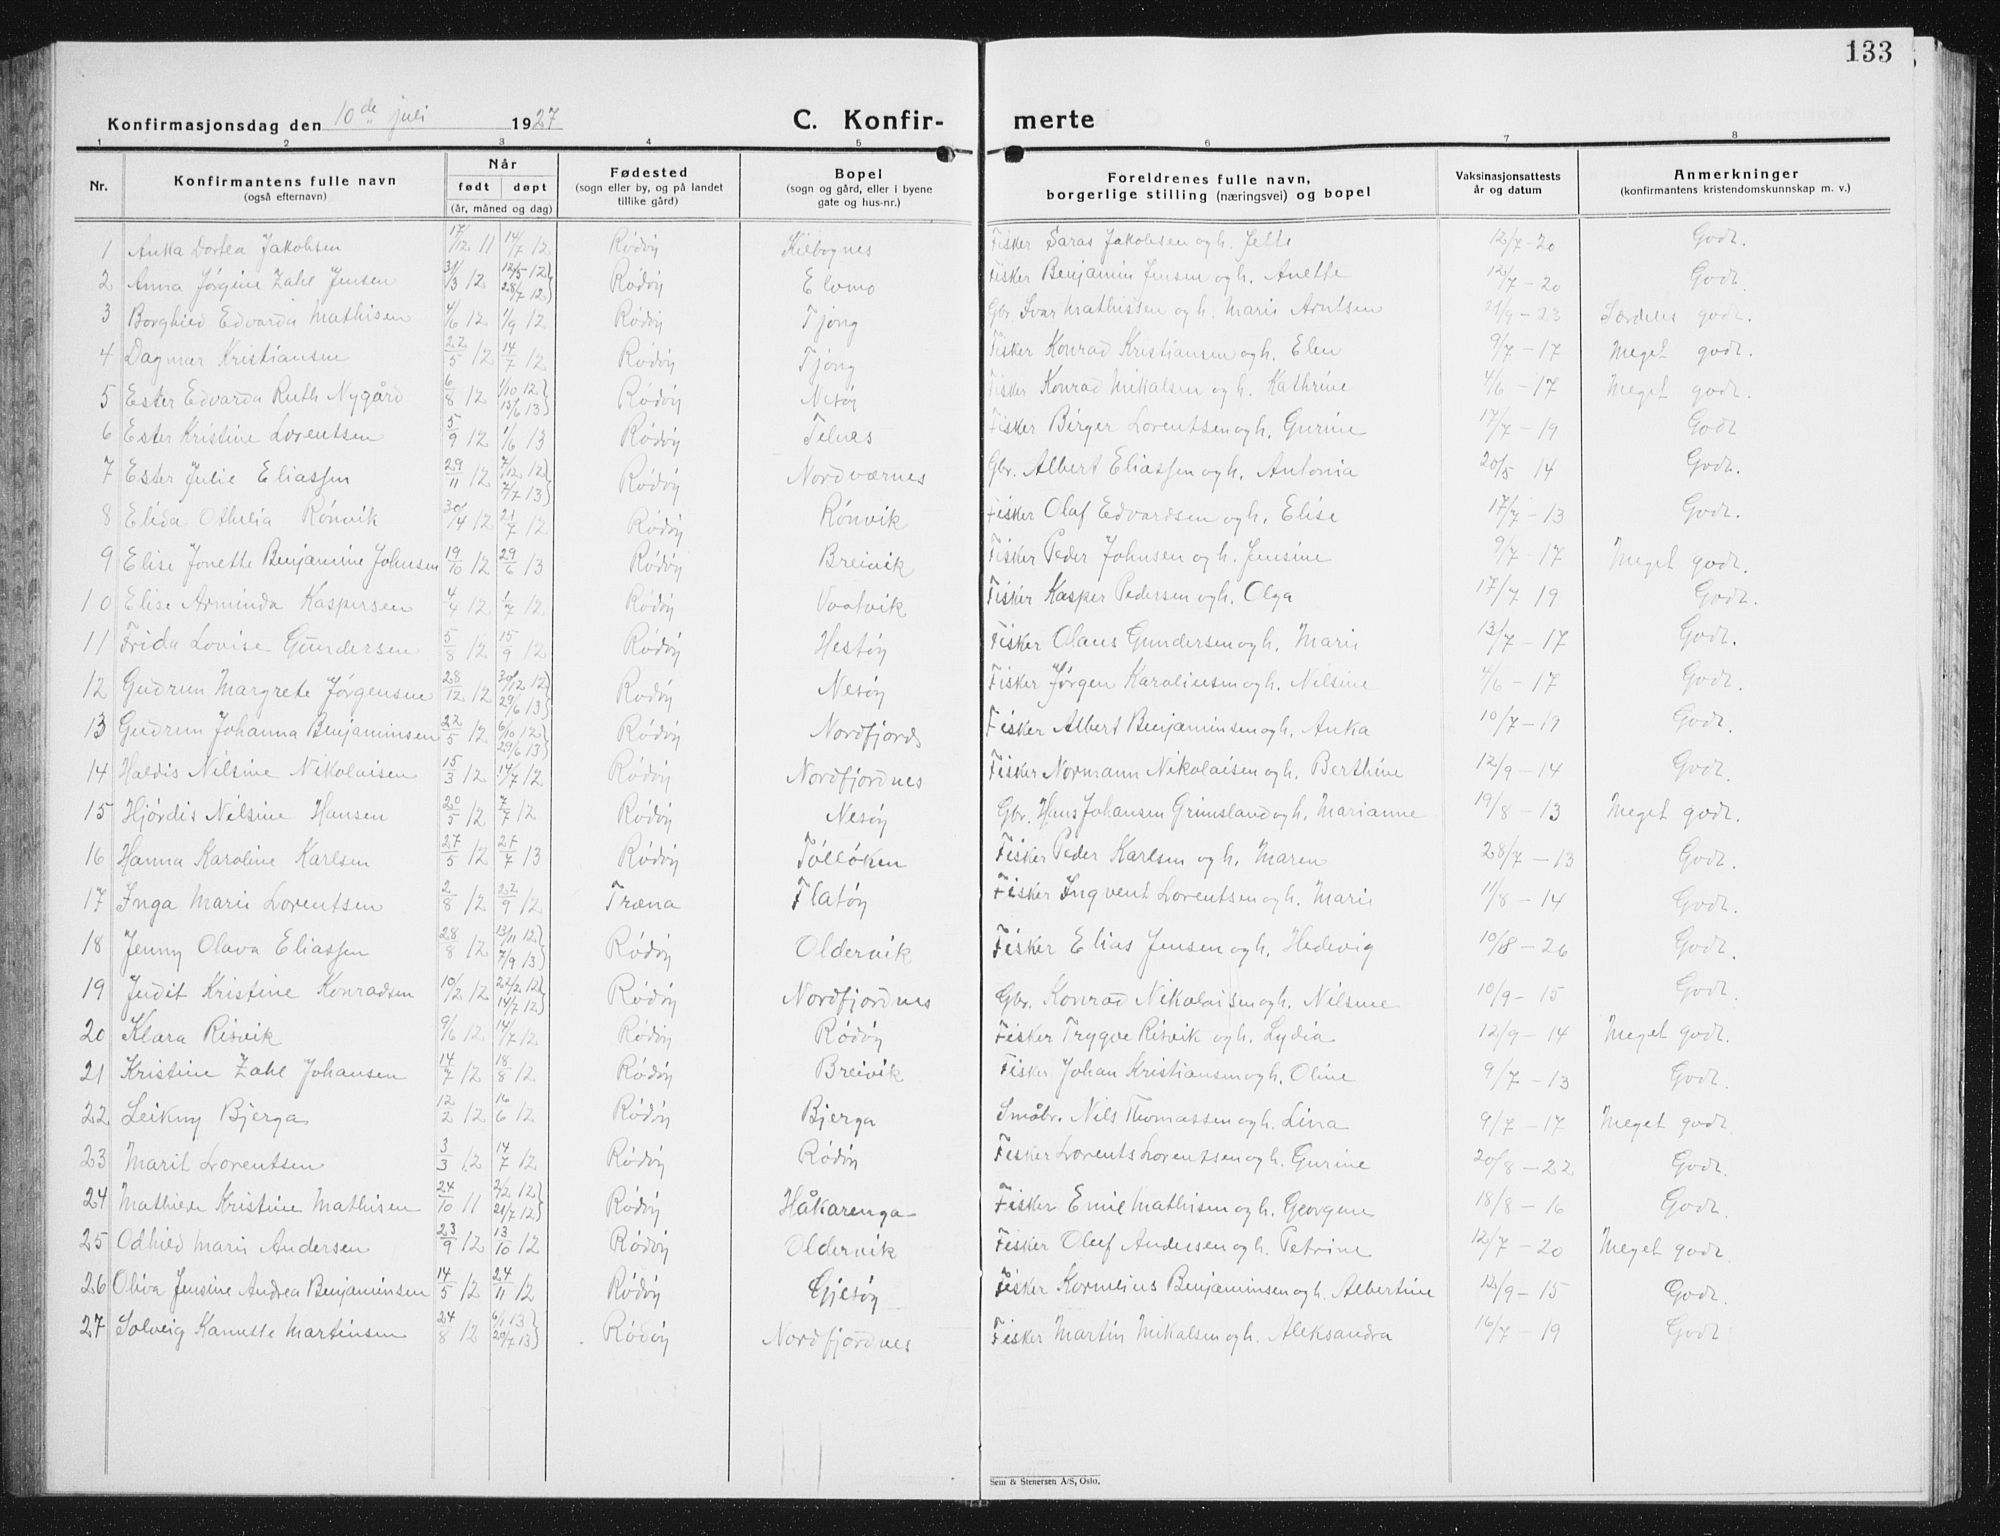 133
Konfirmasjonsdag den 10de juli 1927 C. Konfir- merte
1 2 3 4 5 6 7 8
Nr. Konfirmantens fulle navn (også efternavn) Når født døpt (år, måned og dag) Fødested (sogn eller by, og på landet tillike gård) Bopel (sogn og gård, eller i byene gate og hus-nr.) Foreldrenes fulle navn, borgerlige stilling (næringsvei) og bopel Vaksinasjonsattests år og datum Anmerkninger (konfirmantens kristendomskunnskap m. v.)
1 Anka Dortea Jakobsen 17/12 11 14/7 12 Rödöy Kilbognes Fisker Saras Jakobsen og h. Jette 12/7 - 20 Godt.
2 Anna Jørgine Zahl Jensen 31/3 12 12/5 12 28/7 12 Rödöy Elvmo Fisker Benjamin Jensen og h. Anette 12/7 - 20 Godt.
3 Borghild Edvarda Mathisen 4/6 12 1/9 12 Rödöy Tjong Gbr. Ivar Mathissen og h. Marie Arntsen 21/9 - 23 Særdeles godt.
4 Dagmar Kristiansen 22/5 12 14/7 12 Rödöy Tjong Fisker Konrad Kristiansen og h. Elen 9/7 - 17 Meget godt.
5 Ester Edvarda Ruth Nygård 6/8 12 1/10 12 13/6 13 Rödöy Nesöy Fisker Konrad Mikalsen og h. Kathrine 4/6 - 17 Meget godt.
6 Ester Kristine Lorentsen 5/9 12 1/6 13 Rödöy Telnes Fisker Birger Lorentsen og h. Gurine 17/7 - 19 Godt
7 Ester Julie Eliassen 29/11 12 7/12 12 7/7 13 Rödöy Nordværnes Gbr. Albert Eliassen og h. Antonia 20/5 14 Godt.
8 Elida Othelia Rönvik 30/4 12 21/7 12 Rödöy Rönvik Fisker Olaf Edvardsen og h. Elise 17/7 - 13 Godt.
9 Elise Jonette Benjamine Johnsen 19/10 12 29/6 13 Rödöy Breivik Fisker Peder Johnsen og h. Jensine 9/7 - 17 Meget godt.
10 Elise Arminda Kaspersen 4/4 12 1/7 12 Rödöy Vaatvik Fisker Kasper Pedersen og h. Olga 17/7 19 Godt.
11 Frida Lovise Gundersen 5/8 12 15/9 12 Rödöy Hestöy Fisker Olaus Gundersen og h. Marie 13/7 - 17 Godt.
12 Gudrun Margrete Jørgensen 28/12 12 30/12 12 29/6 13 Rödöy Nesöy Fisker Jørgen Karoliusen og h. Nilsine 4/6 - 17 Godt.
13 Gudrun Johanna Benjaminsen 22/5 12 6/10 12 29/6 13 Rödöy Nordfjord Fisker Albert Benjaminsen og h. Anka 10/7 - 19 Godt.
14 Haldis Nilsine Nikolaisen 15/3 12 14/7 12 Rödöy Nordfjordnes Fisker Normann Nikolaisen og h. Berthine 12/9 - 14 Godt.
15 Hjördis Nilsine Hansen 20/5 12 7/7 12 Rödöy Nesöy Gbr. Hans Johansen Grimsland og h. Marianne 19/8 - 13 Meget godt.
16 Hanna Karoline Karlsen 27/5 12 27/7 13 Rödöy Töllöken Fisker Peder Karlsen og h. Maren 28/7 - 13 Godt.
17 Inga Marie Lorentsen 2/8 12 22/9 12 Træna Flatöy Fisker Ingvent Lorentsen og h. Marie 11/8 - 14 Godt.
18 Jenny Olava Eliassen 28/8 12 13/11 12 7/9 13 Rödöy Oldervik Fisker Elias Jensen og h. Hedevig 10/8 - 26 Godt.
19 Judit Kristine Konradsen 10/2 12 22/2 12 14/7 12 Rödöy Nordfjordnes Gbr. Konrad Nikolaisen og h. Nilsine 10/9 - 15 Godt.
20 Klara Risvik 9/6 12 14/7 12 Rödöy Rödöy Fisker Trygve Risvik og h. Lydia 12/9 - 14 Meget godt.
21 Kristine Zahl Johansen 14/7 12 18/8 12 Rödöy Breivik Fisker Johan Kristiansen og h. Oline 9/7 - 13 Godt.
22 Leikny Bjerga 12/2 12 16/6 12 Rödöy Bjerga Småbr. Nils Thomassen og h. Lina 9/7 - 17 Meget godt.
23 Marit Lorentsen 3/3 12 14/7 12 Rödöy Rödöy Fisker Lorents Lorentsen og h. Gurine 20/8 - 22 Godt.
24 Mathilde Kristine Mathisen 24/10 11 2/2 12 21/7 12 Rödöy Håkarenga Fisker Emil Mathisen og h. Georgine 18/8 - 16 Godt.
25 Odhild Marie Andersen 23/9 12 13/10 12 Rödöy Oldervik Fisker Oluf Andersen og h. Petrine 12/7 - 20 Meget godt.
26 Oliva Jensine Andrea Benjaminsen 14/5 12 24/11 12 Rödöy Gjesöy Fisker Kornelius Benjaminsen og h. Albertine 12/9 - 15 Godt.
27 Solveig Kamille Martinsen 24/8 12 6/1 13 20/7 13 Rödöy Nordfjordnes Fisker Martin Mikalsen og h. Aleksandra 16/7 - 19 Godt
Sem & Stenersen A/S, Oslo.